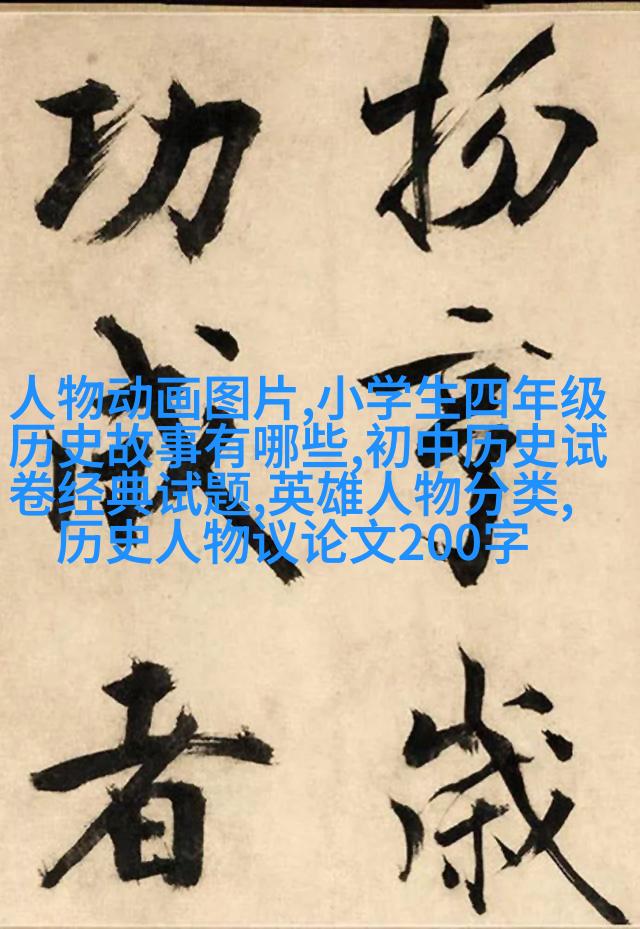 人物动画图片,小学生四年级
历史故事有哪些,初中历史试
卷经典试题,英雄人物分类,
历史人物议论文200字
歲
功成者